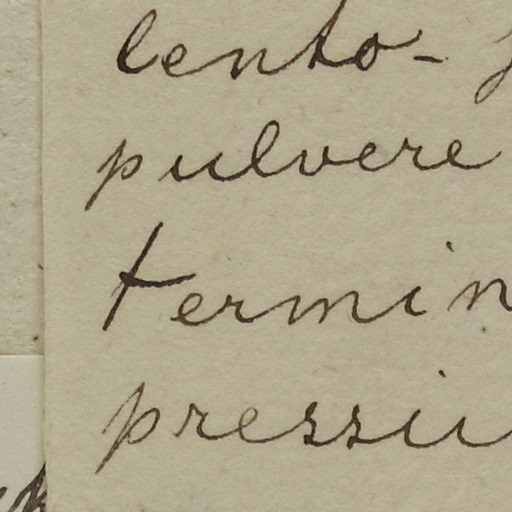 lento-
pulvere
termin
pressiu